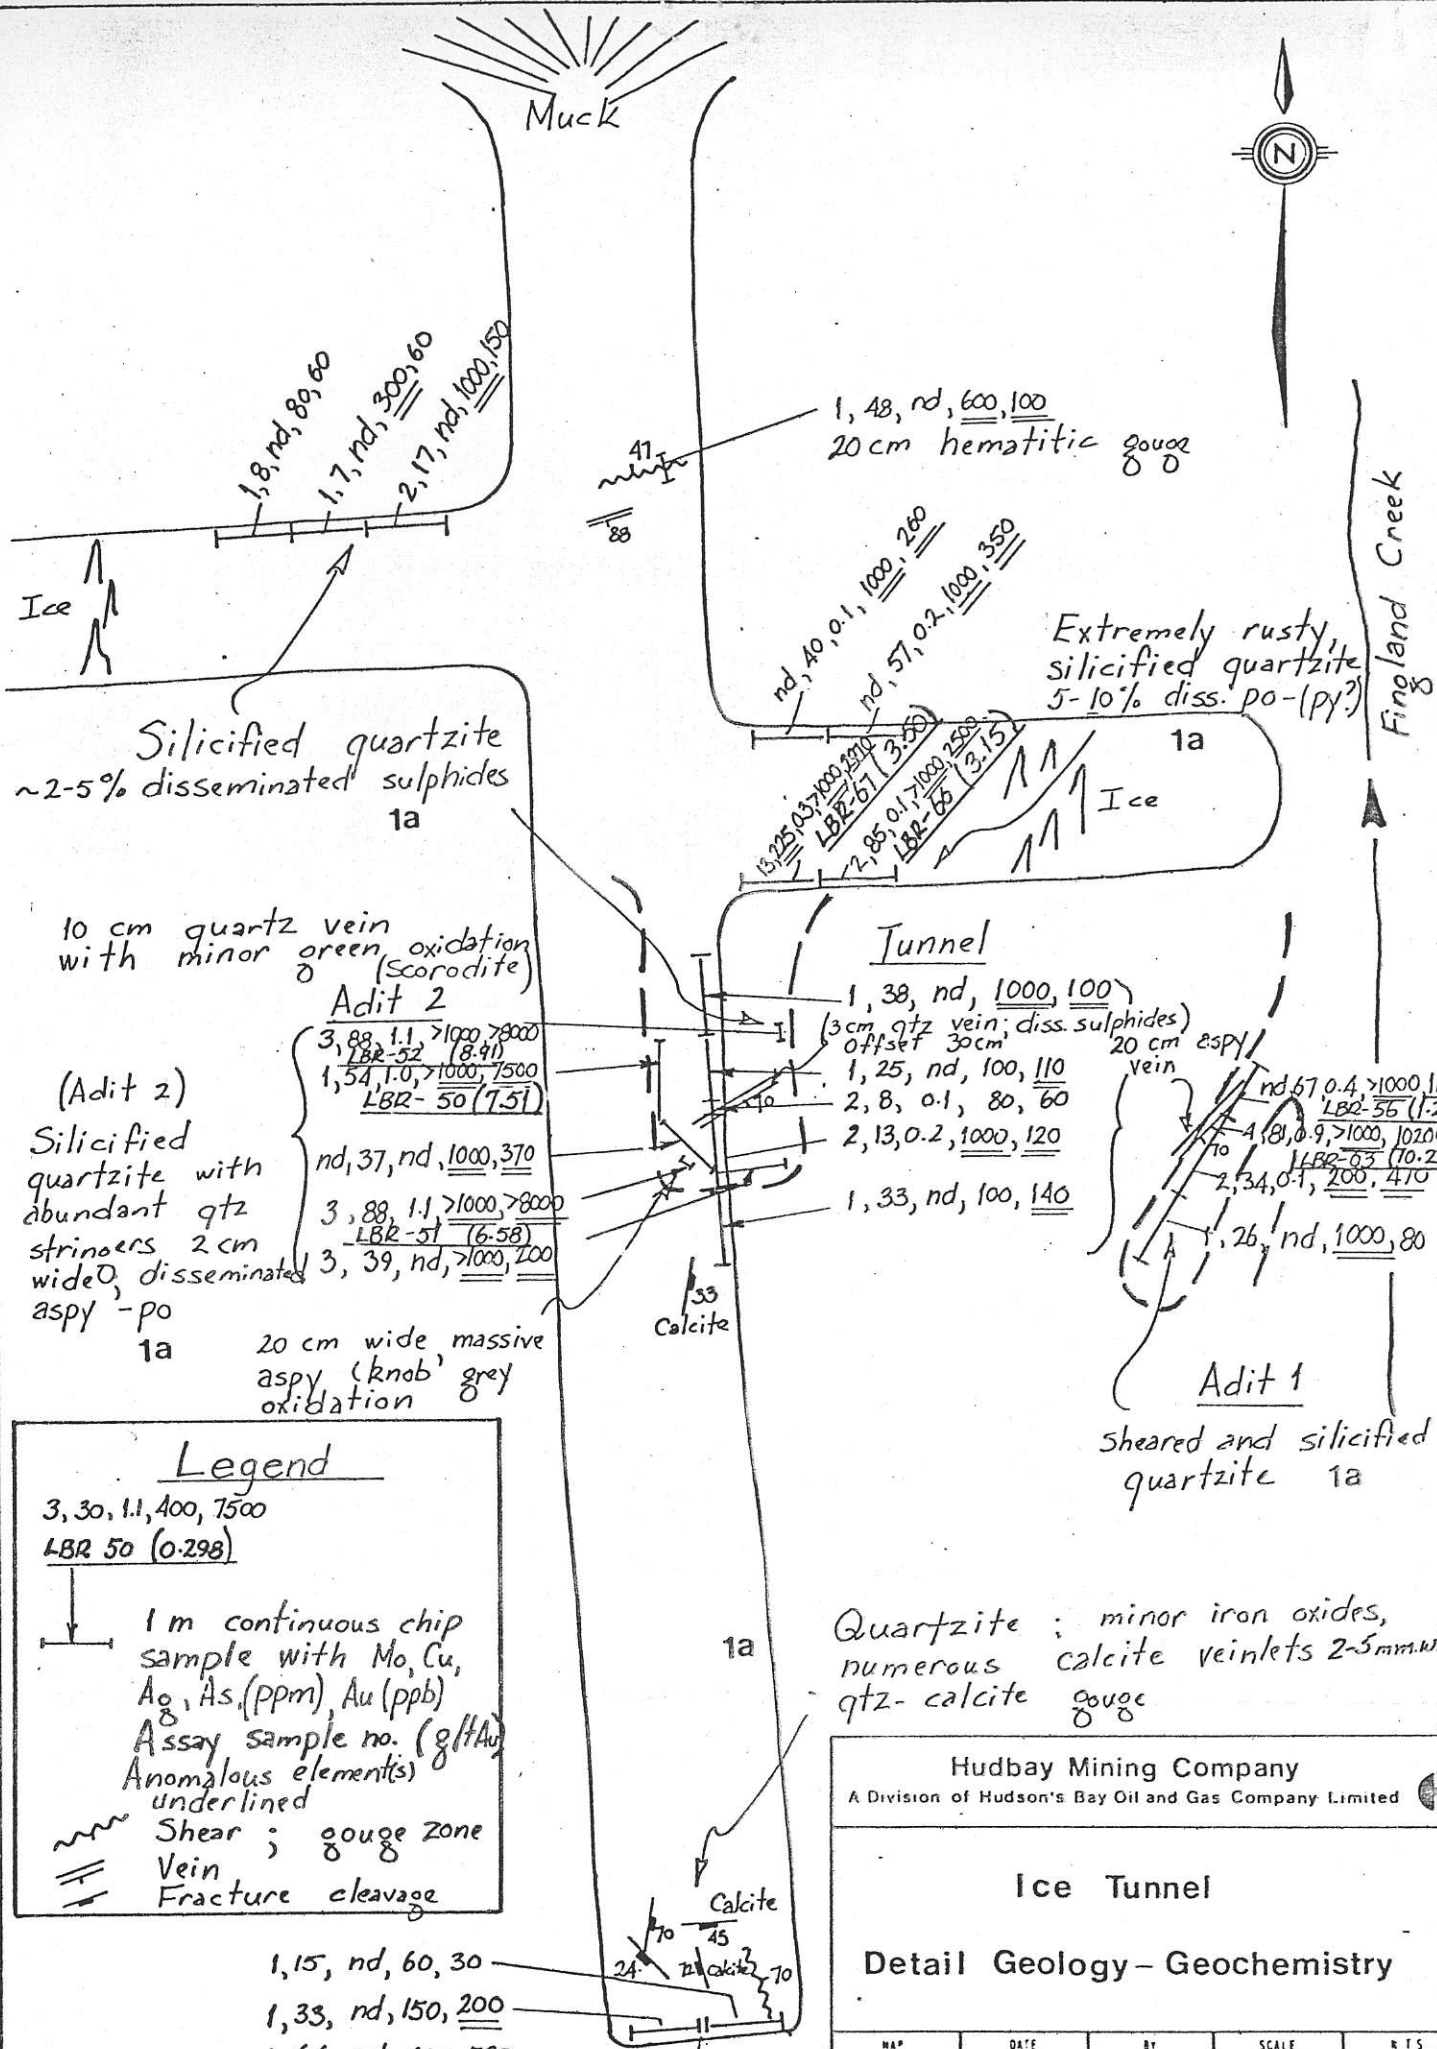 Muck
N
1, 8, nd, 80, 60
1, 7, nd, 300, 60
2, 17, nd, 1000, 150
1, 48, nd, 600, 100
20 cm hematitic gouge
47
88
Ice
nd, 40, 0.1, 1000, 260
nd, 57, 0.2, 1000, 350
Extremely rusty,
silicified quartzite
5-10% diss. po-(py?)
1a
Fingland Creek
Silicified quartzite
~2-5% disseminated sulphides
1a
LBR-67 (3.60)
2, 85, 0.1, >1000, 2500
LBR-66 (3.15)
Ice
10 cm quartz vein
with minor green oxidation
(Scorodite)
Adit 2
3, 88, 1.1, >1000, >8000
LBR-52 (8.91)
1, 54, 1.0, >1000, 7500
LBR-50 (7.51)
nd, 37, nd, 1000, 370
3, 88, 1.1, >1000, >8000
LBR-51 (6.58)
3, 39, nd, >1000, 200
(Adit 2)
Silicified
quartzite with
abundant qtz
stringers 2 cm
wide, disseminated
aspy - po
1a
20 cm wide massive
aspy 'knob' grey
oxidation
Tunnel
1, 38, nd, 1000, 100
(3cm qtz vein; diss. sulphides)
offset 30cm
1, 25, nd, 100, 110
2, 8, 0.1, 80, 60
2, 13, 0.2, 1000, 120
1, 33, nd, 100, 140
70
33
Calcite
20 cm aspy
vein
nd, 67, 0.4, >1000,
LBR-56
4, 81, 0.9, >1000,
LBR-63
70
2, 34, 0.1, 200, 470
1, 26, nd, 1000, 80
Adit 1
Sheared and silicified
quartzite 1a
Legend
3, 30, 1.1, 400, 7500
LBR 50 (0.298)
1 m continuous chip
sample with Mo, Cu,
Ag, As, (ppm), Au (ppb)
Assay sample no. (g/t Au)
Anomalous element(s)
underlined
Shear ; gouge zone
Vein
Fracture cleavage
1a
Quartzite ; minor iron oxides,
numerous calcite veinlets 2-5mm.
qtz-calcite gouge
70
Calcite
45
24
Calcite
70
1, 15, nd, 60, 30
1, 33, nd, 150, 200
Hudbay Mining Company
A Division of Hudson's Bay Oil and Gas Company Limited
Ice Tunnel
Detail Geology – Geochemistry
MAP DATE BY SCALE N T S